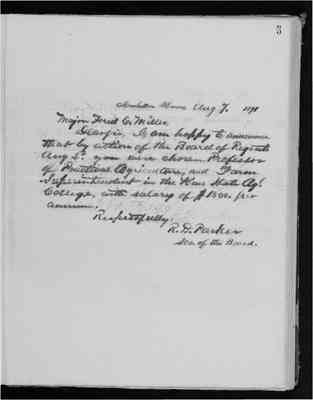 3
Manhattan Kansas Aug 7. 1871
Major Fred E. Miller
Dear Sir, I am happy to announce
that by action of the Board of Regents
Aug 2. you were chosen Professor
of Practical Agriculture, and Farm
Superintendent in the Kans State Agl.
College, with salary of per
annum.
Respectfully,
R. D. Parker
Sec of the Board.